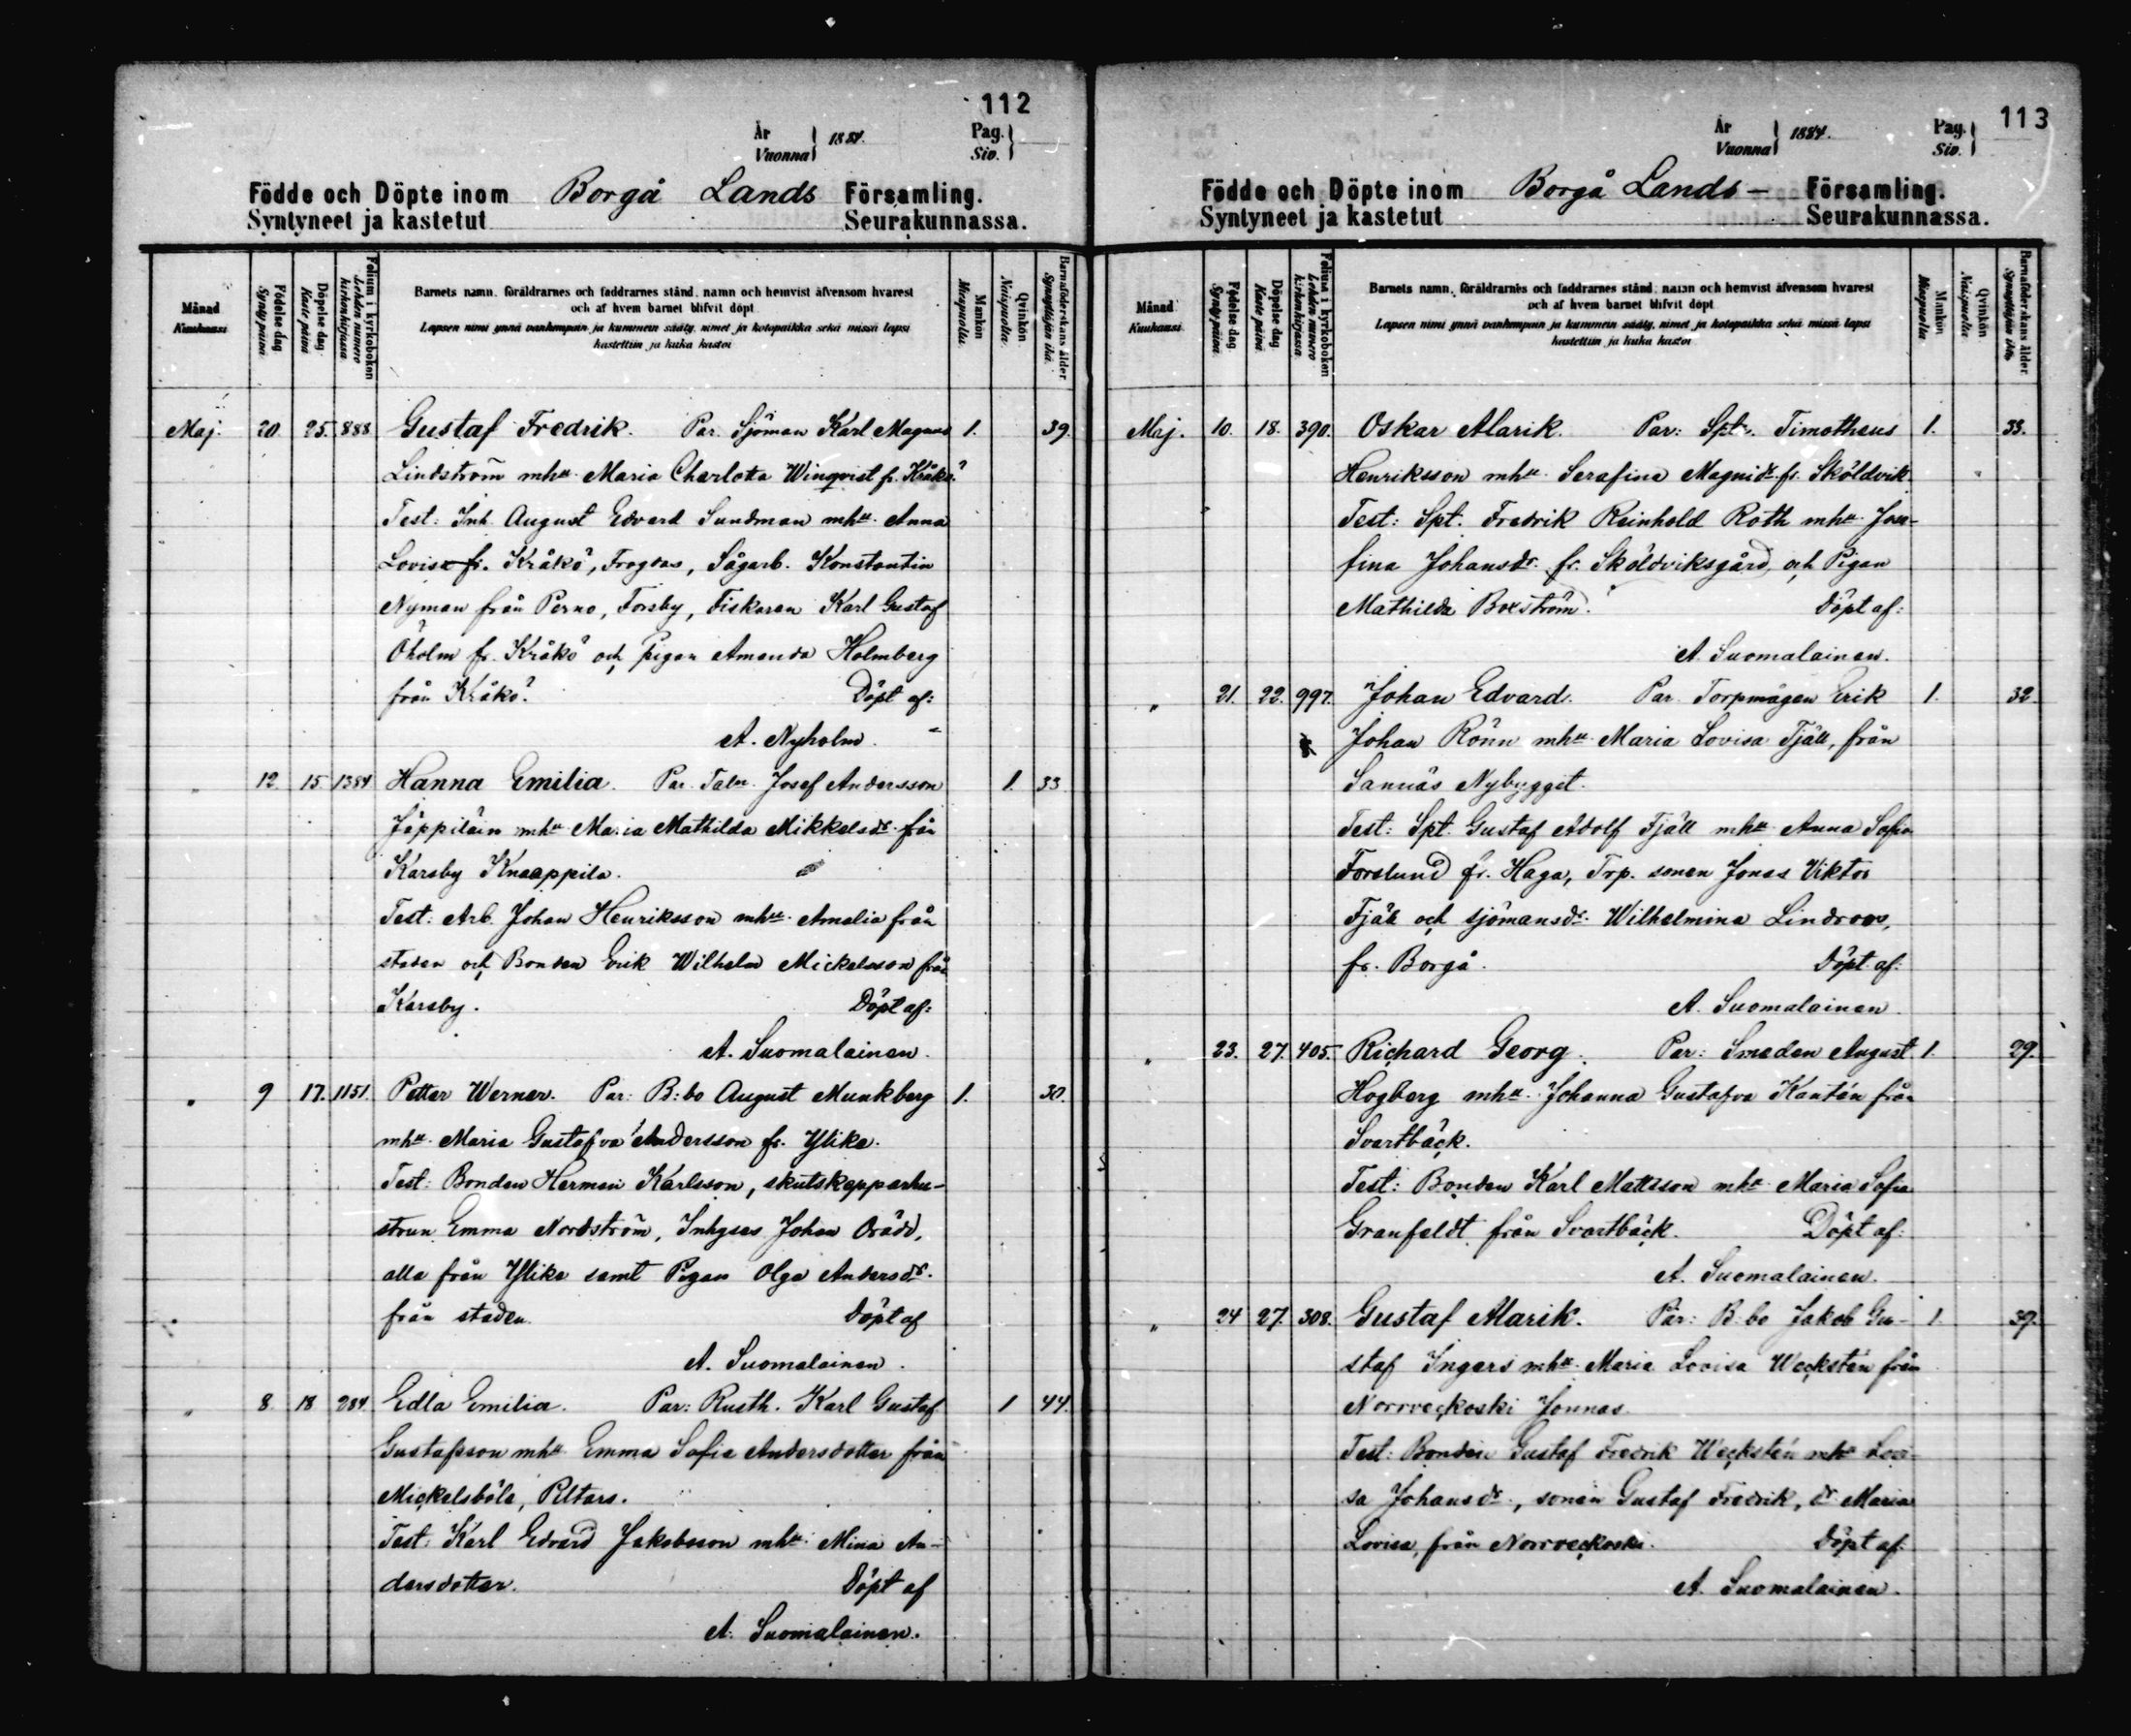 112
År
Vuonna } 1884.
Pag.
Siv. }
Födde och Döpte inom Borgå Lands Församling.
Syntyneet ja kastetut Seurakunnassa.
Månad
Kuukausi
Födelse dag
Synty päivä.
Döpelse dag
Kaste päivä
Folium i kyrkoboken
Lehden numero kirkonkirjassa
Barnets namn, föräldrarnes och faddrarnes stånd, namn och hemvist äfvensom hvarest
och af hvem barnet blifvit döpt
Lapsen nimi ynnä vanhempain ja kummein sääty, nimet ja kotopaikka sekä missä lapsi
kastettiin ja kuka kastoi
Mankön
Miespuolia.
Qvinkön
Naispuolia.
Barnaföderskans ålder
Synnyttäjän ikä.
Maj. 20. 25. 888 Gustaf Fredrik. Par. Sjöman Karl Magnus 1. 39.
Lindström mhu Maria Charlotta Winqvist fr. Kråkö.
Test: Inh. August Edvard Sundman mhu Anna
Lovisa fr. Kråkö, Frogdas, Sågarb. Konstantin
Nyman från Perno, Forsby, Fiskaren Karl Gustaf
Öholm fr. Kråkö och pigan Amanda Holmberg
från Kråkö. Döpt af:
A. Nyholm.
" 12. 15. 1384 Hanna Emilia. Par. Josef Andersson 1. 33
Jäppiläin mhu Maria Mathilda Mikkelsdr. från
Karsby Knaappila.
Test: Arb. Johan Henriksson mhu Amalia från
staden och Bonden Erik Wilhelm Mickelsson från
Karsby. Döpt af:
A. Suomalainen.
" 9 17. 1151. Petter Werner. Par: B:bo August Munkberg 1. 30.
mhu Maria Gustafva Andersson fr. Ylike.
Test: Bonden Herman Karlsson, skutskepparhu-
strun Emma Nordström, Inhyses Johan Orädd,
alla från Ylike samt Pigan Olga Andersdr.
från staden. Döpt af
A. Suomalainen.
" 8. 18 284. Edla Emilia. Par: Rusth. Karl Gustaf 1 44.
Gustafsson mhu Emma Sofia Andersdotter från
Mickelsböle, Peltars.
Test: Karl Edvard Jakobsson mhu Mina An-
dersdotter. Döpt af
A. Suomalainen.
113
År
Vuonna } 1884.
Pag.
Siv. }
Födde och Döpte inom Borgå Lands- Församling.
Syntyneet ja kastetut Seurakunnassa.
Månad
Kuukausi
Födelse dag
Synty päivä.
Döpelse dag
Kaste päivä
Folium i kyrkoboken
Lehden numero kirkonkirjassa
Barnets namn, föräldrarnes och faddrarnes stånd, namn och hemvist äfvensom hvarest
och af hvem barnet blifvit döpt
Lapsen nimi ynnä vanhempain ja kummein sääty, nimet ja kotopaikka sekä missä lapsi
kastettiin ja kuka kastoi
Mankön
Miespuolia
Qvinkön
Naispuolia
Barnaföderskans ålder.
Synnyttäjän ikä.
Maj. 10. 18. 390. Oskar Alarik. Par: Spt. Timotheus 1. 33.
Henriksson mhu Serafina Magnidr. fr. Sköldvik.
Test: Spt. Fredrik Reinhold Roth mhu Jose-
fina Johansdr. fr. Sköldviksgård, och Pigan
Mathilda Boxström. Döpt af:
A. Suomalainen.
" 21. 22. 997. Johan Edvard. Par. Torpmågen Erik 1. 32.
Johan Rönn mhu Maria Lovisa Fjäll, från
Sannäs Nybygget.
Test: Spt. Gustaf Adolf Fjäll mhu Anna Sofia
Forslund fr. Haga, Trp. sonen Jonas Viktor
Fjäll och sjömansdr. Wilhelmina Lindroos,
fr. Borgå. Döpt af:
A. Suomalainen
" 23. 27. 405. Richard Georg. Par: Smeden August 1. 29.
Hogberg mhu Johanna Gustafva Kantén från
Svartbäck.
Test: Bonden Karl Mattsson mhu Maria Sofia
Granfeldt från Svartbäck. Döpt af:
A. Suomalainen.
" 24 27. 308. Gustaf Alarik. Par: B:bo Jakob Gu- 1. 39.
staf Ingers mhu Maria Lovisa Weckstén från
Norrveckoski Jonnas.
Test: Bonden Gustaf Fredrik Weckstén mhu Lovi-
sa Johansdr., sonen Gustaf Fredrik, dr Maria
Lovisa, från Norrveckoski. Döpt af:
A. Suomalainen.